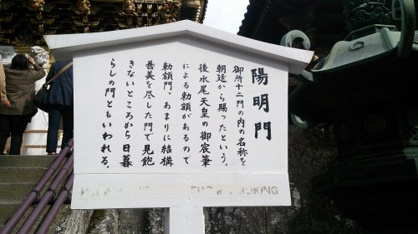 陽明門
御所十二門の内の名称を
朝廷から賜ったという。
後水尾天皇の御宸筆
による勅額があるので
勅額門、あまりに結構
善美を尽した門で見飽
きないところから日暮
らしの門ともいわれる。